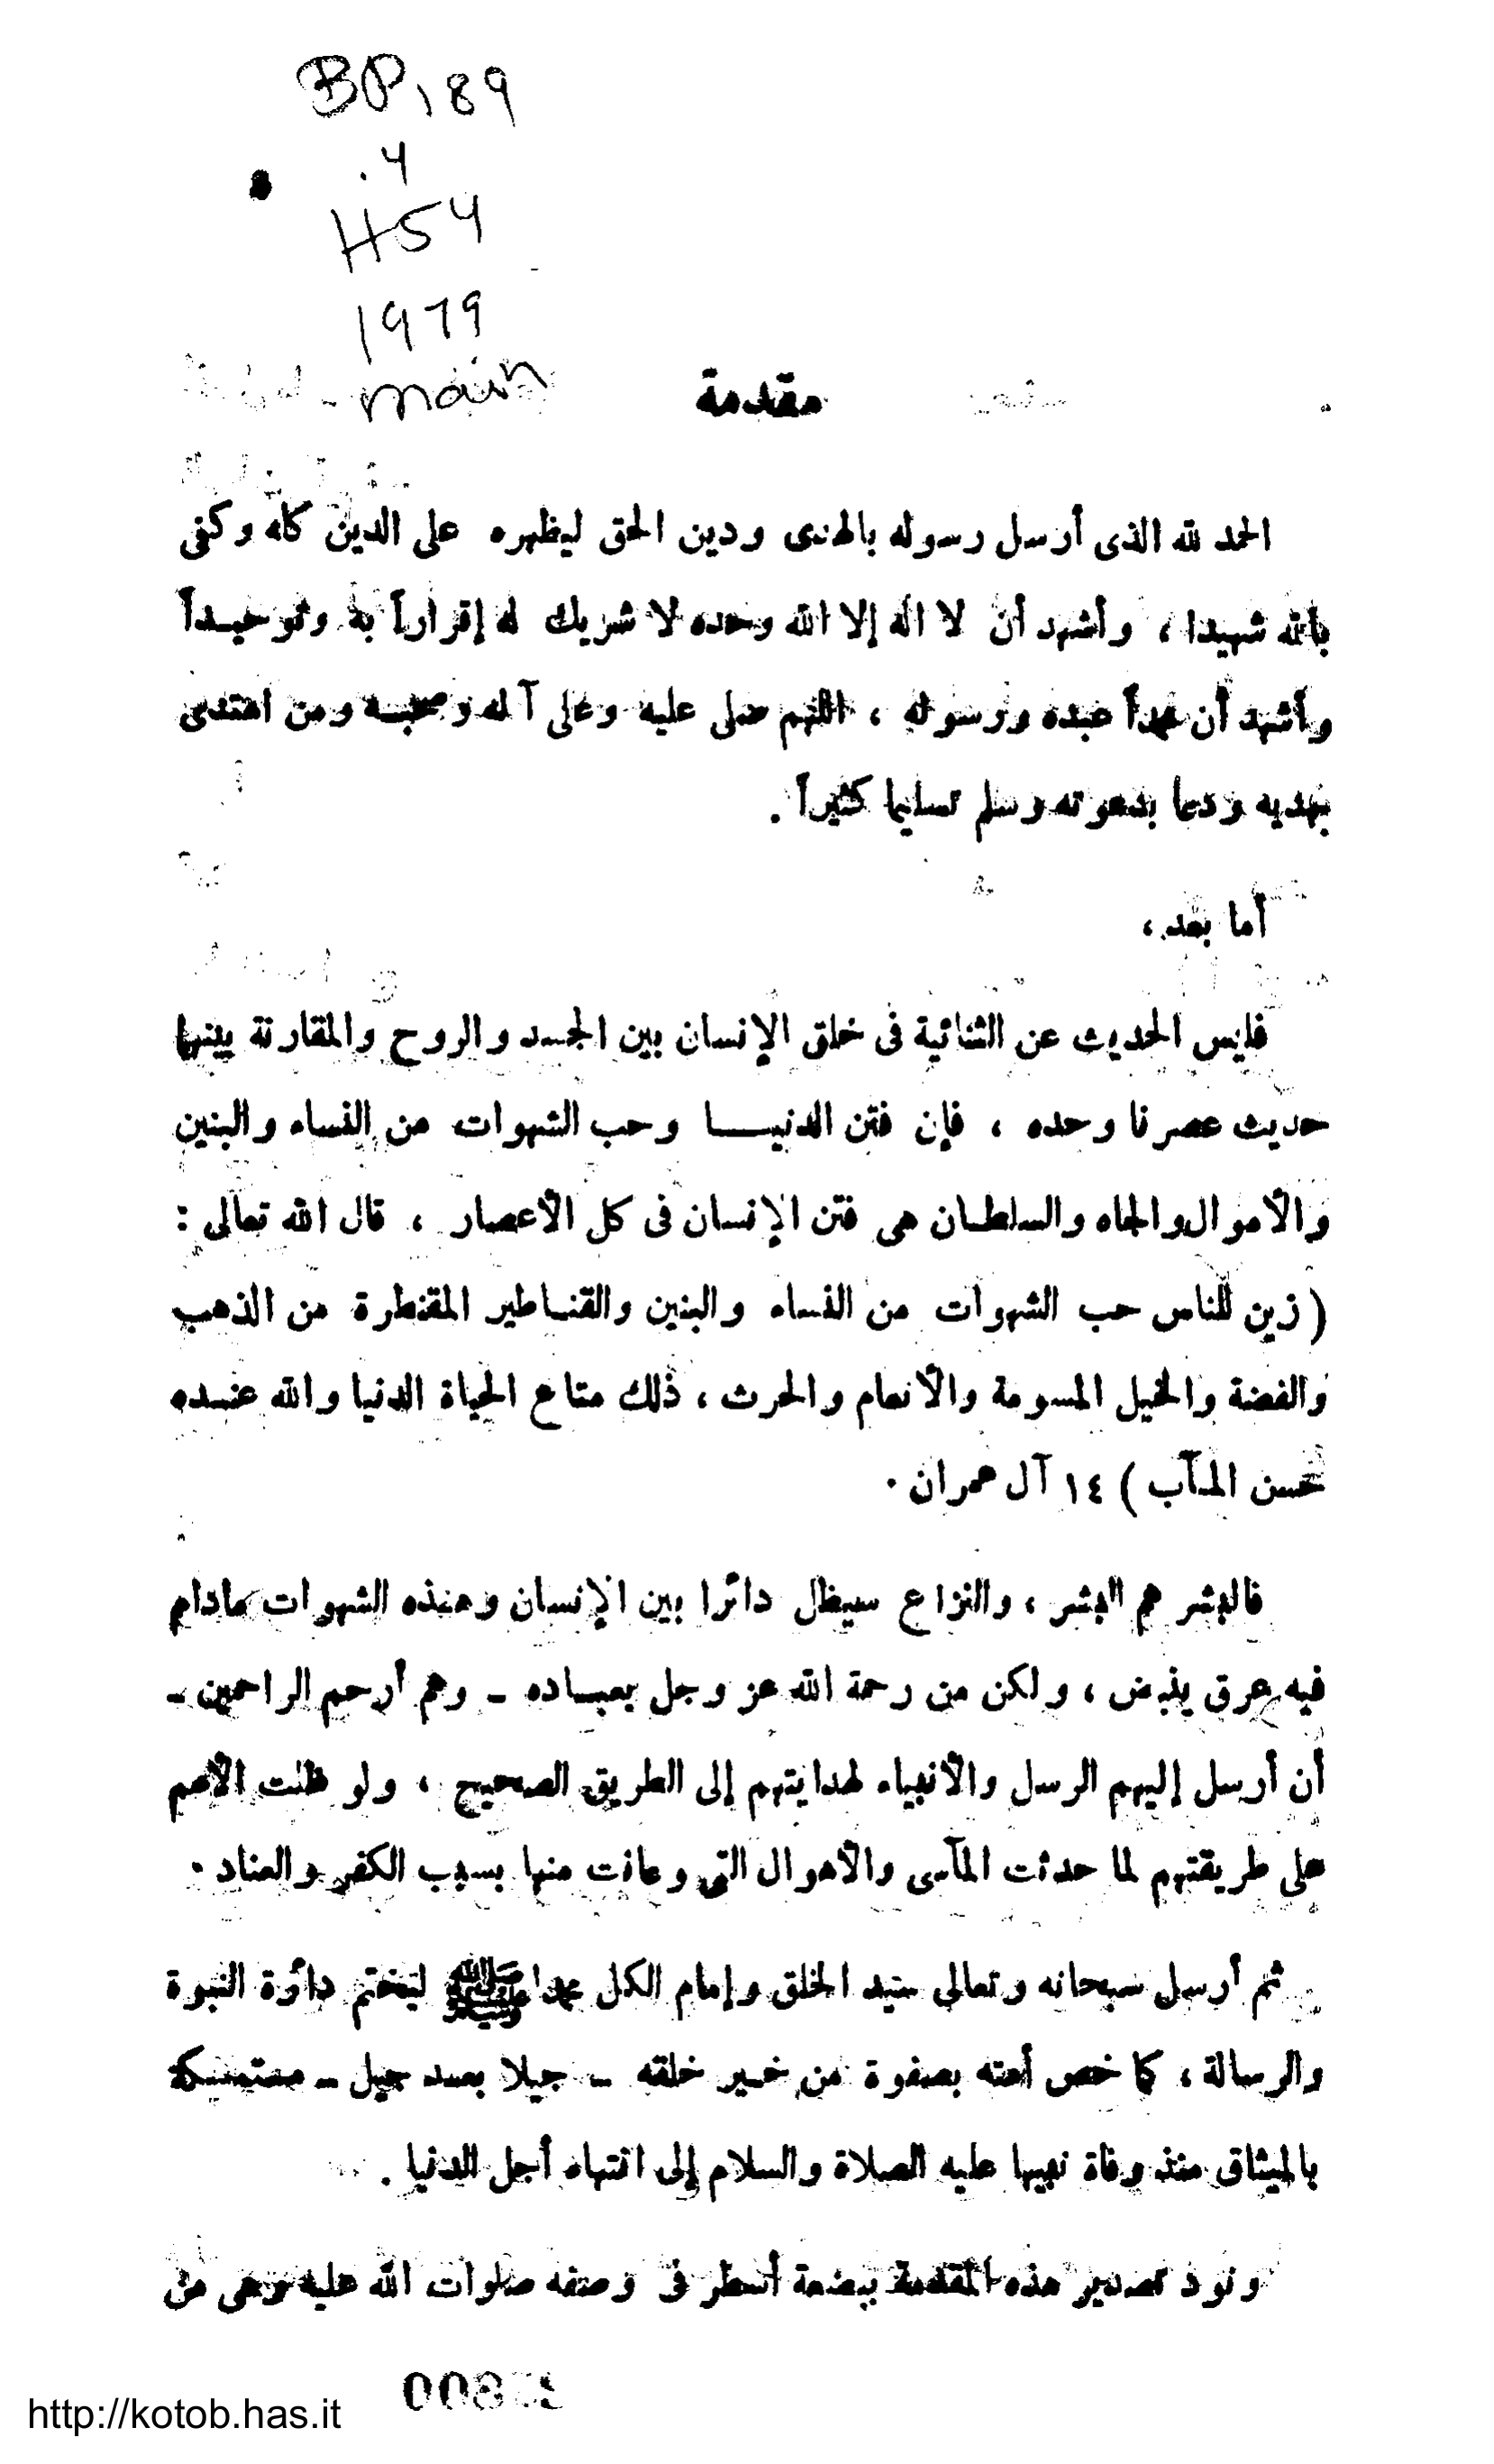 BP189
.4
H54
1979
main
مقدمة
الحمد لله الذى أرسل رسوله بالهدى ودين الحق ليظهره على الدين كله وكفى
بالله شهيدا ، وأشهد أن لا اله إلا الله وحده لا شريك له إقراراً به وتوحيداً
وأشهد أن محمداً عبده ورسوله ، اللهم صلى عليه وعلى آله وصحبه ومن اهتدى
بهديه ودعا بدعوته وسلم تسليما كثيراً .
أما بعد ،
فليس الحديث عن الثنائية فى خلق الإنسان بين الجسد والروح والمقارنة بينهما
حديث عصرنا وحده ، فإن فتن الدنيا وحب الشهوات من النساء والبنين
والأموال والجاه والسلطان هى فتن الإنسان فى كل الأعصار ، قال الله تعالى :
( زين للناس حب الشهوات من النساء والبنين والقناطير المقنطرة من الذهب
والفضة والخيل المسومة والأنعام والحرث ، ذلك متاع الحياة الدنيا والله عنده
حسن المآب ) ١٤ آل عمران .
فالبشر هم البشر ، والنزاع سيظل دائرا بين الإنسان وهذه الشهوات مادام
فيه عرق ينبض ، ولكن من رحمة الله عز وجل بعباده - وهم أرحم الراحمين -
أن أرسل إليهم الرسل والأنبياء لهدايتهم إلى الطريق الصحيح ، ولو ظلت الأمم
على طريقتهم لما حدثت المآسى والأهوال التى وعانت منها بسبب الكفر والعناد .
ثم أرسل سبحانه وتعالى سيد الخلق وإمام الكل محمدا ﷺ ليختم دائرة النبوة
والرسالة ، كما خص أمته بصفوة من خير خلقه - جيلا بعد جيل - مستمسكة
بالميثاق منذ وفاة نبيها عليه الصلاة والسلام إلى انتهاء أجل الدنيا .
ونود تصدير هذه المقدمة ببضعة أسطر فى وصفه صلوات الله عليه وهى من
http://kotob.has.it